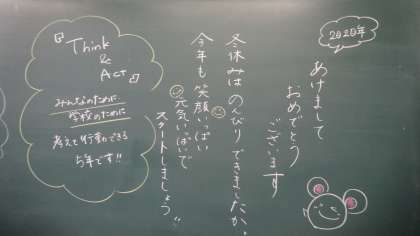 2020年
あけまして
おめでとう
ございます
冬休みは のんびり できましたか。
今年も 笑顔いっぱい
元気いっぱいで
スタートしましょう!!
『Think
&
Act』
みんなのために
学校のために
考えて行動できる
5年です!!